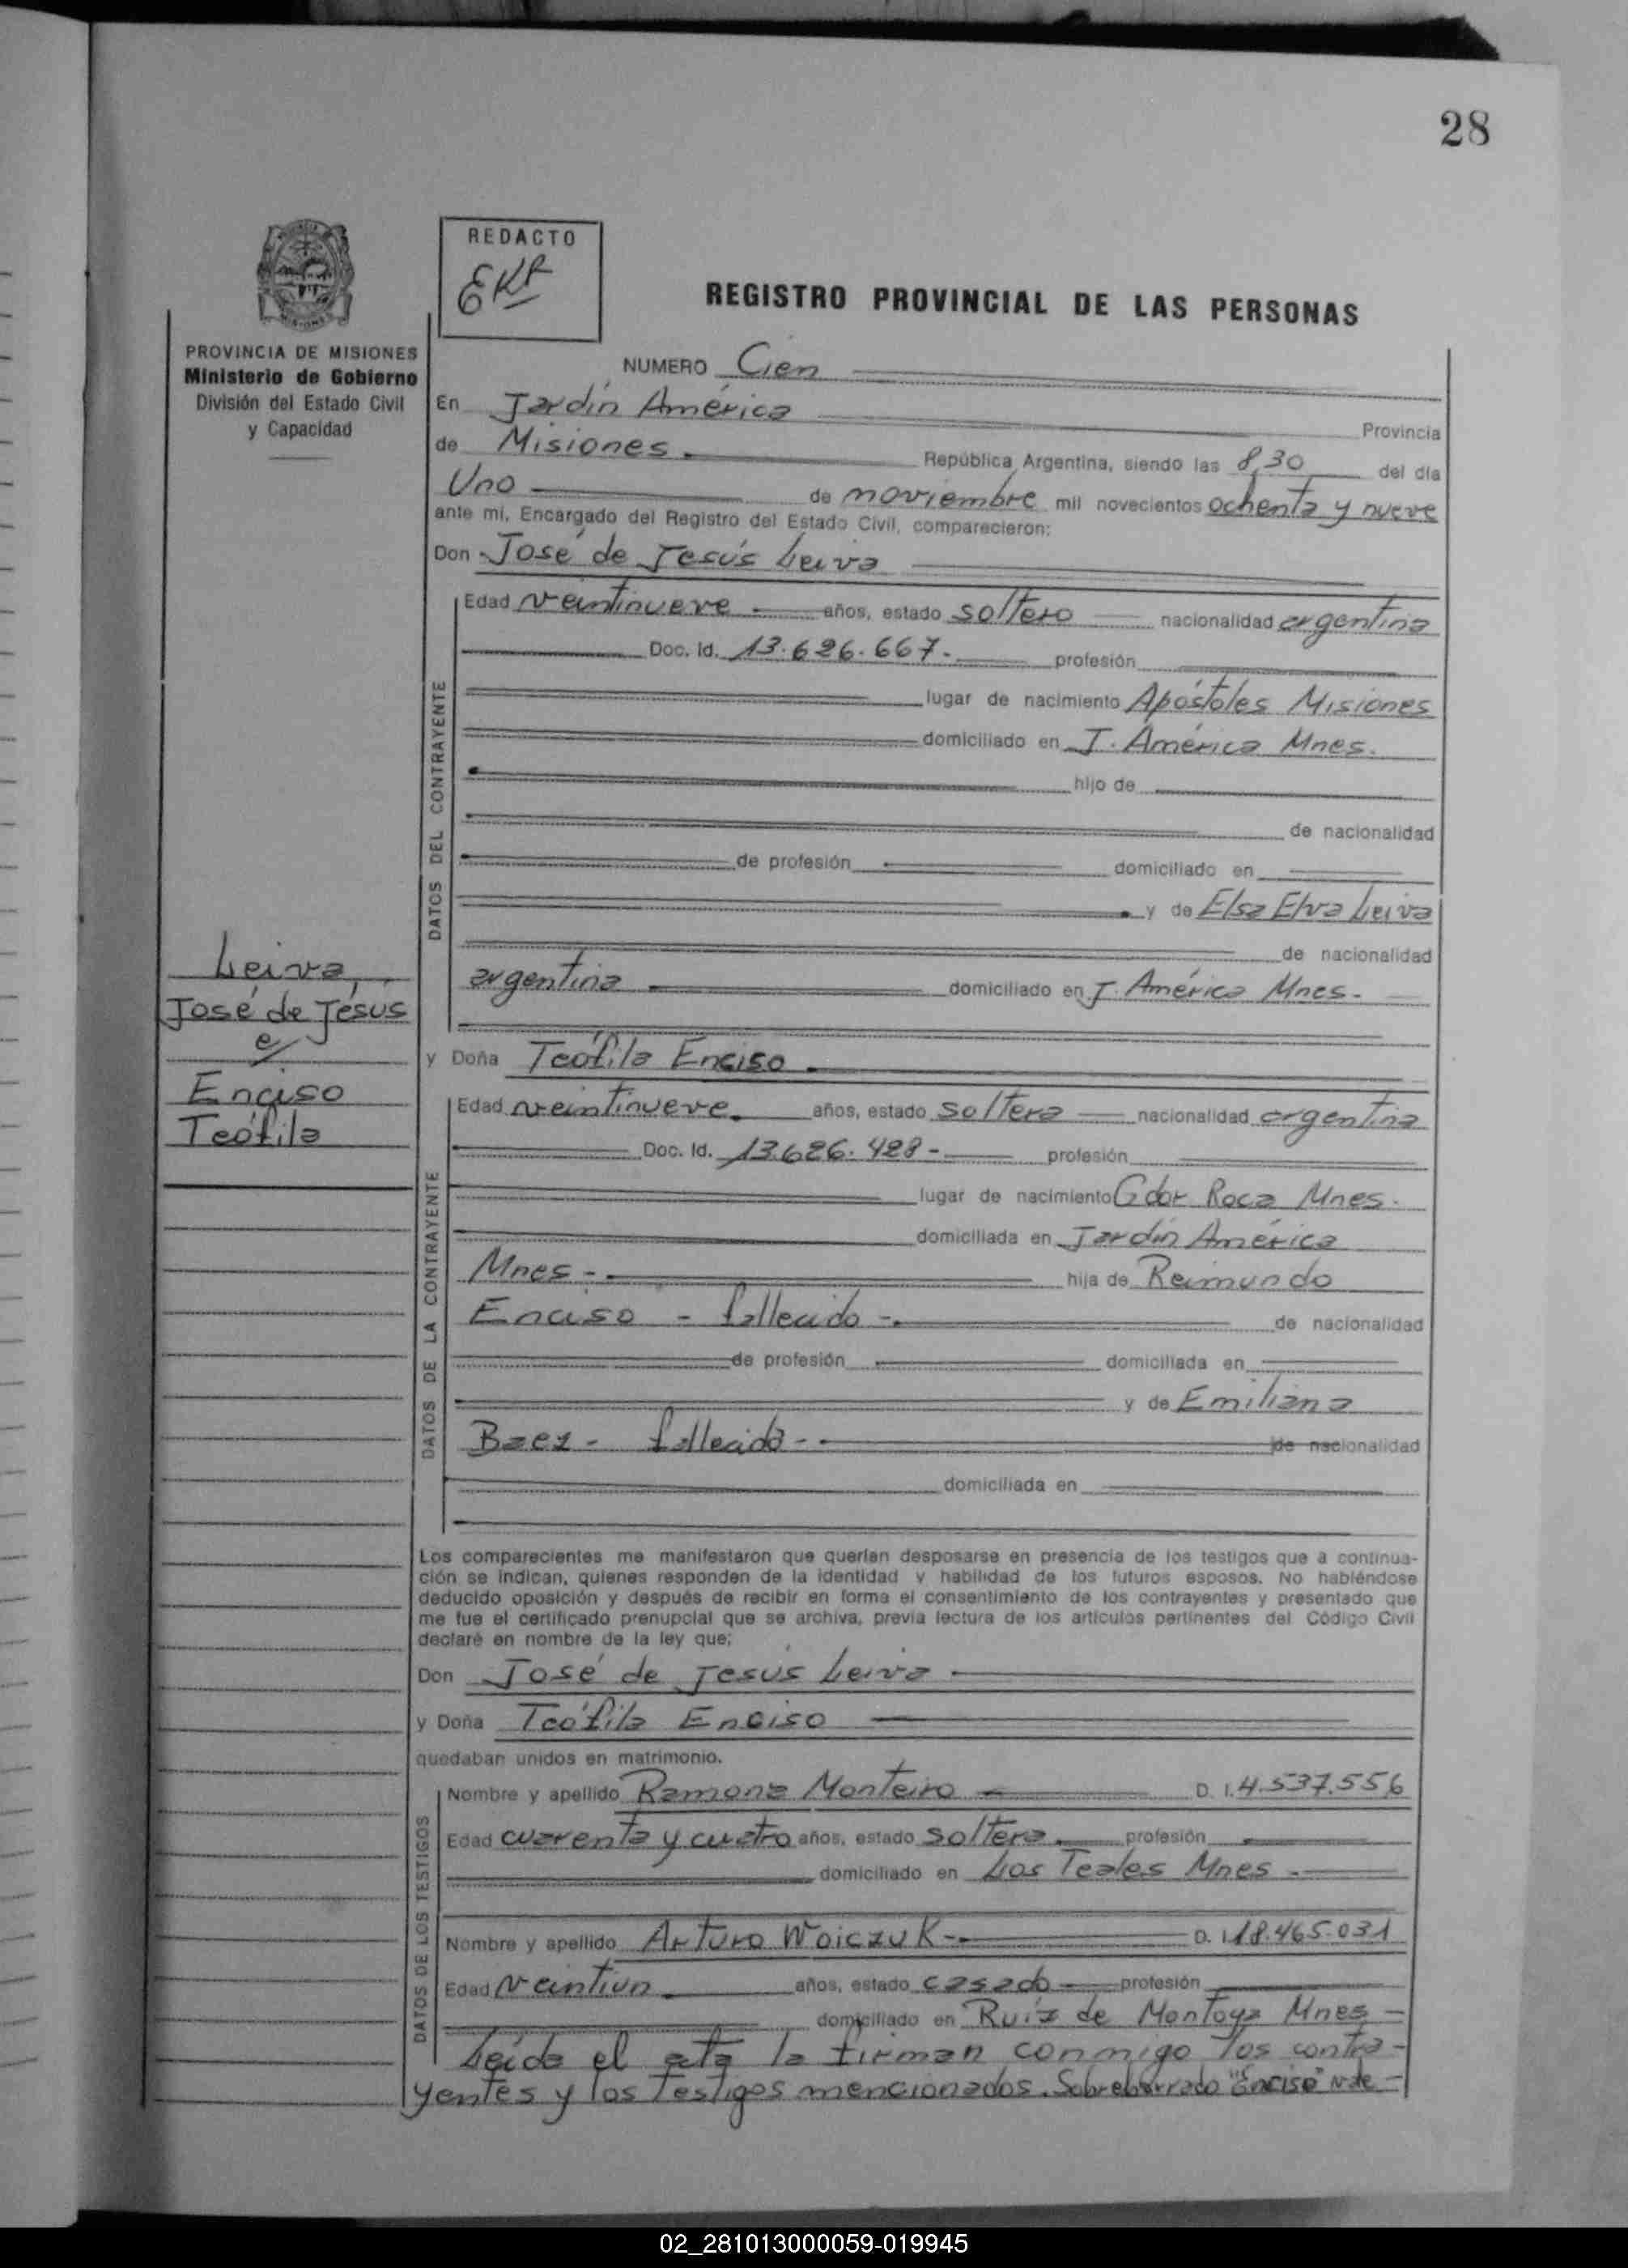 28
REDACTO
EKR
REGISTRO PROVINCIAL DE LAS PERSONAS
PROVINCIA DE MISIONES
Ministerio de Gobierno
División del Estado Civil
y Capacidad
NUMERO Cien
En Jardín América Provincia
de Misiones. República Argentina, siendo las 8,30 del día
Uno de noviembre mil novecientos ochenta y nueve
ante mí, Encargado del Registro del Estado Civil, comparecieron:
Don José de Jesús Leiva
DATOS DEL CONTRAYENTE
Edad veintinueve años, estado soltero nacionalidad argentina
Doc. Id. 13.626.667.- profesión
lugar de nacimiento Apóstoles Misiones
domiciliado en J. América Mnes.
hijo de
de nacionalidad
de profesión domiciliado en
y de Elsa Elva Leiva
de nacionalidad
argentina domiciliado en J. América Mnes.-
Leiva,
José de Jesús
e/
Enciso
Teófila
y Doña Teófila Enciso
DATOS DE LA CONTRAYENTE
Edad veintinueve. años, estado soltera nacionalidad argentina
Doc. Id. 13.626.428- profesión
lugar de nacimiento Gdor Roca Mnes.
domiciliada en Jardín América
Mnes- hija de Reimundo
Enciso - fallecido - de nacionalidad
de profesión domiciliada en
y de Emiliana
Baez - fallecida - de nacionalidad
domiciliada en
Los comparecientes me manifestaron que querían desposarse en presencia de los testigos que a continua-
ción se indican, quienes responden de la identidad y habilidad de los futuros esposos. No habiéndose
deducido oposición y después de recibir en forma el consentimiento de los contrayentes y presentado que
me fue el certificado prenupcial que se archiva, previa lectura de los artículos pertinentes del Código Civil
declaré en nombre de la ley que;
Don José de Jesús Leiva
y Doña Teófila Enciso
quedaban unidos en matrimonio.
DATOS DE LOS TESTIGOS
Nombre y apellido Ramona Monteiro D. I. 4.537.556
Edad cuarenta y cuatro años, estado soltera profesión
domiciliado en Los Teales Mnes -
Nombre y apellido Arturo Woiczuk- D. I 18.465.031
Edad veintiun años, estado casado profesión
domiciliado en Ruíz de Montoya Mnes -
Leída el acta la firman conmigo los contra-
yentes y los testigos mencionados. Sobreborrado "Enciso" vale -
02_281013000059-019945